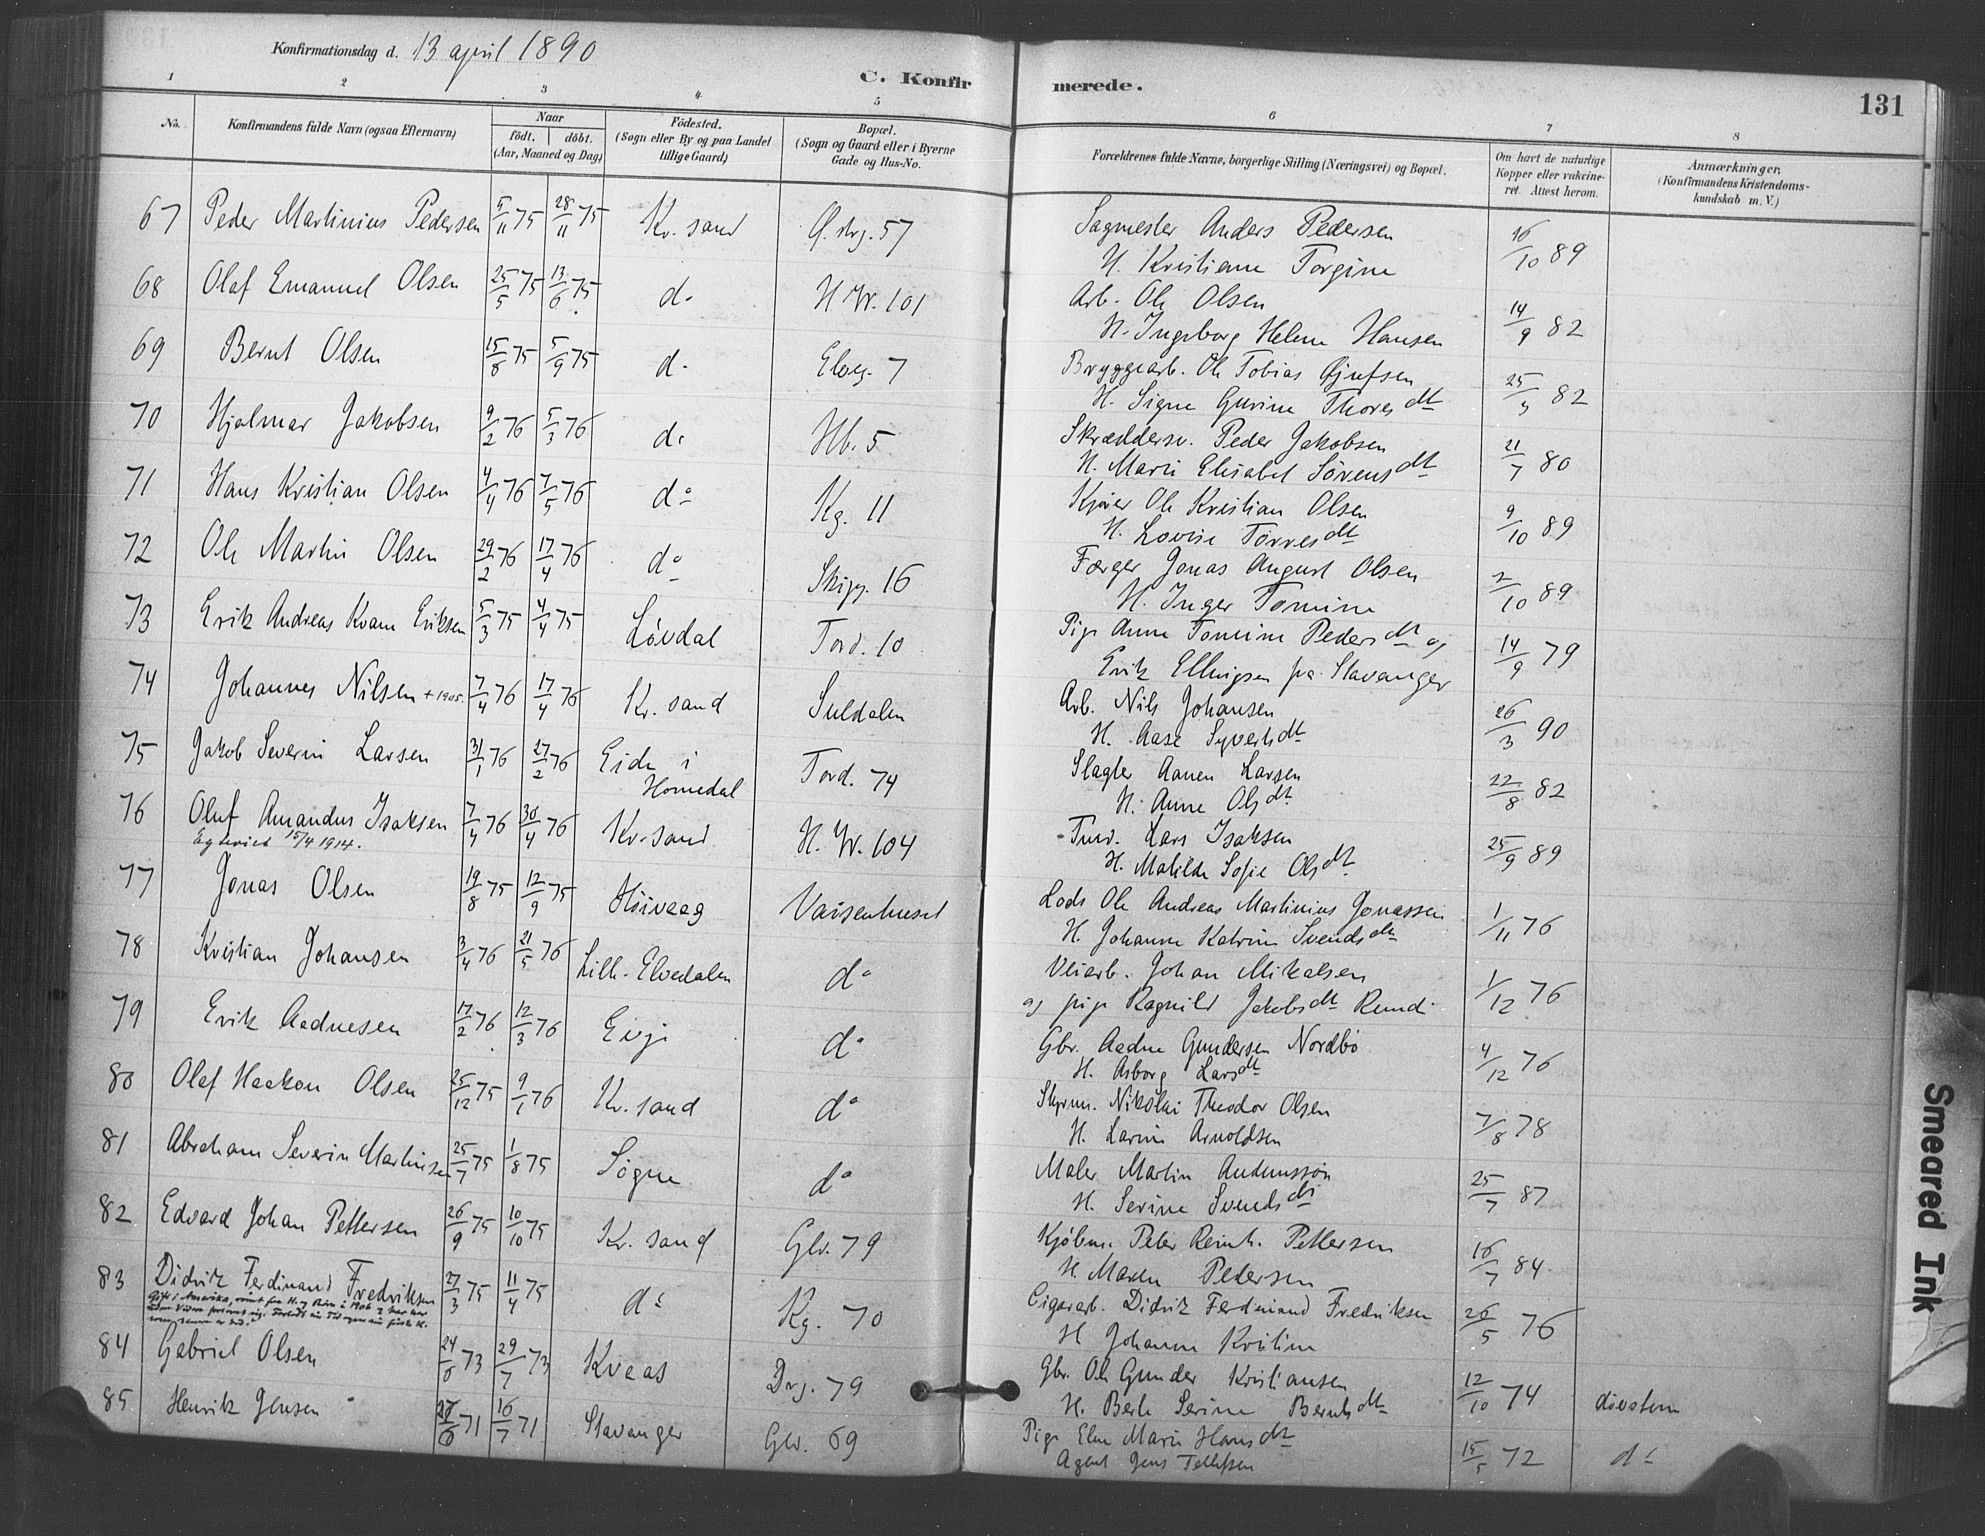 Konfirmationsdag d. 13 april 1890
C. Konfirmerede.
131
1 2 3 4 5 6 7 8
No.
Konfirmandens fulde Navn (ogsaa Efternavn)
Naar
födt. döbt.
(Aar, Maaned og Dag)
Födested.
(Sogn eller By og paa Landet
tillige Gaard)
Bopæl.
(Sogn og Gaard eller i Byerne
Gade og Hus-No.
Forældrenes fulde Navne, borgerlige Stilling (Næringsvei) og Bopæl.
Om havt de naturlige
Kopper eller vakcine-
ret. Attest herom.
Anmærkninger,
(Konfirmandens Kristendoms-
kundskab m. V.)
67 Peder Martinius Pedersen 5/11 75 28/11 75 Kr. sand Ø. strg. 57 Sagmester Anders Pedersen 16/10 89
H. Kristiane Torgine
68 Olaf Emanuel Olsen 25/5 75 13/6 75 do H. W. 101 Arb. Ole Olsen 14/9 82
H. Ingeborg Helene Hansen
69 Bernt Olsen 15/8 75 5/9 75 do Elveg. 7 Bryggearb. Ole Tobias 25/5 82
H. Signe Gurine Thoresdt
70 Hjalmar Jakobsen 9/2 76 5/3 76 do Hb. 5 Skræddersv. Peder Jakobsen 21/7 80
H. Marie Elisabet Sørensdt
71 Hans Kristian Olsen 4/4 76 7/5 76 do Kg. 11 Kjører Ole Kristian Olsen 9/10 89
H. Lovise Tørresdt
72 Ole Martin Olsen 29/2 76 17/4 76 do Skipp. 16 Færger Jonas August Olsen 2/10 89
H. Inger Tomine
73 Erik Andreas Kvam Eriksen 5/3 75 4/4 75 Løvdal Tord. 10 Pige Anne Tomine Pedersdt og 14/9 79
Erik Ellingsen fra Stavanger
74 Johannes Nilsen + 1905. 7/4 76 17/4 76 Kr. sand Suldalen Arb. Nils Johansen 26/3 90
H. Aase Syvertsdt
75 Jakob Severin Larsen 31/1 76 27/2 76 Eide i Tord. 74 Slagter Aanen Larsen 22/8 82
Homedal H. Anne Olsdt
76 Oluf Amandus Isaksen 7/4 76 30/4 76 Kr. sand H. W. 104 Tmd. Lars Isaksen 25/9 89
Egteviet 15/4 1914. H. Matilde Sofie Olsdt
77 Jonas Olsen 19/8 75 12/9 75 Høivaag Vaisenhuset Lods Ole Andreas Martinius Jonassen 1/11 76
H. Johanne Katrine Svendsdt
78 Kristian Johansen 3/4 76 21/5 76 Lille-Elvedalen do Veiarb. Johan Mikalsen 1/12 76
og pige Ragnild Jakobsdt Rundi
79 Erik Aadnesen 17/2 76 12/3 76 Evje do Gbr. Aadne Gundersen Nordbø 4/12 76
H. Asborg Larsdt
80 Olaf Haakon Olsen 25/12 75 9/1 76 Kr. sand do Styrm. Nikolai Theodor Olsen 7/8 78
H. Larine Arnoldsen
81 Abraham Severin Martinsen 25/7 75 1/8 75 Søgne do Maler Martin Andunssøn 25/7 87
H. Serine Svendsdt
82 Edvard Johan Pettersen 26/9 75 10/10 75 Kr. sand Glv. 79 Kjøbm. Peter Reinh. Pettersen 16/7 84
H. Maren Pedersen
83 Didrik Ferdinand Fredriksen 27/3 75 11/4 75 do Kg. 70 Cigararb. Didrik Ferdinand Fredriksen 26/5 76
Gift i Amerika,
H. Johanne Kristine
84 Gabriel Olsen 24/6 73 29/7 73 Kvaas Drg. 79 Gbr. Ole Gunder Kristiansen 12/10 74 døvstum
H. Berte Serine Berntsdt
85 Henrik Jensen 28/6 71 16/7 71 Stavanger Glv. 69 Pige Elen Marie Hansdt 15/5 72 do
Agent Jens Tellefsen
Smeared Ink